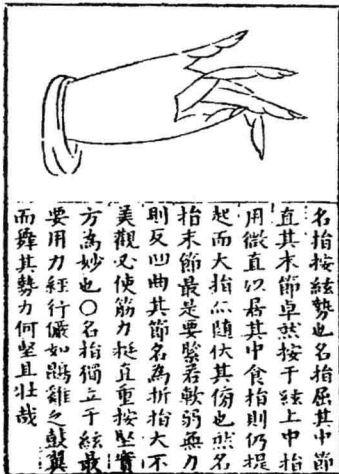 名指按絃勢也名指屈其中節
直其末節卓然按于絃上中指
用微直以居其中食指則仍提
起而大指亦隨伏其傍也然名
指末節最是要緊若軟弱無力
則反凹曲其節名為折指大不
美觀必使筋力挺直重按堅實
方為妙也〇名指獨立于絃最
要用力經行儼如鶤雞之鼓翼
而舞其勢力何堅且壯哉